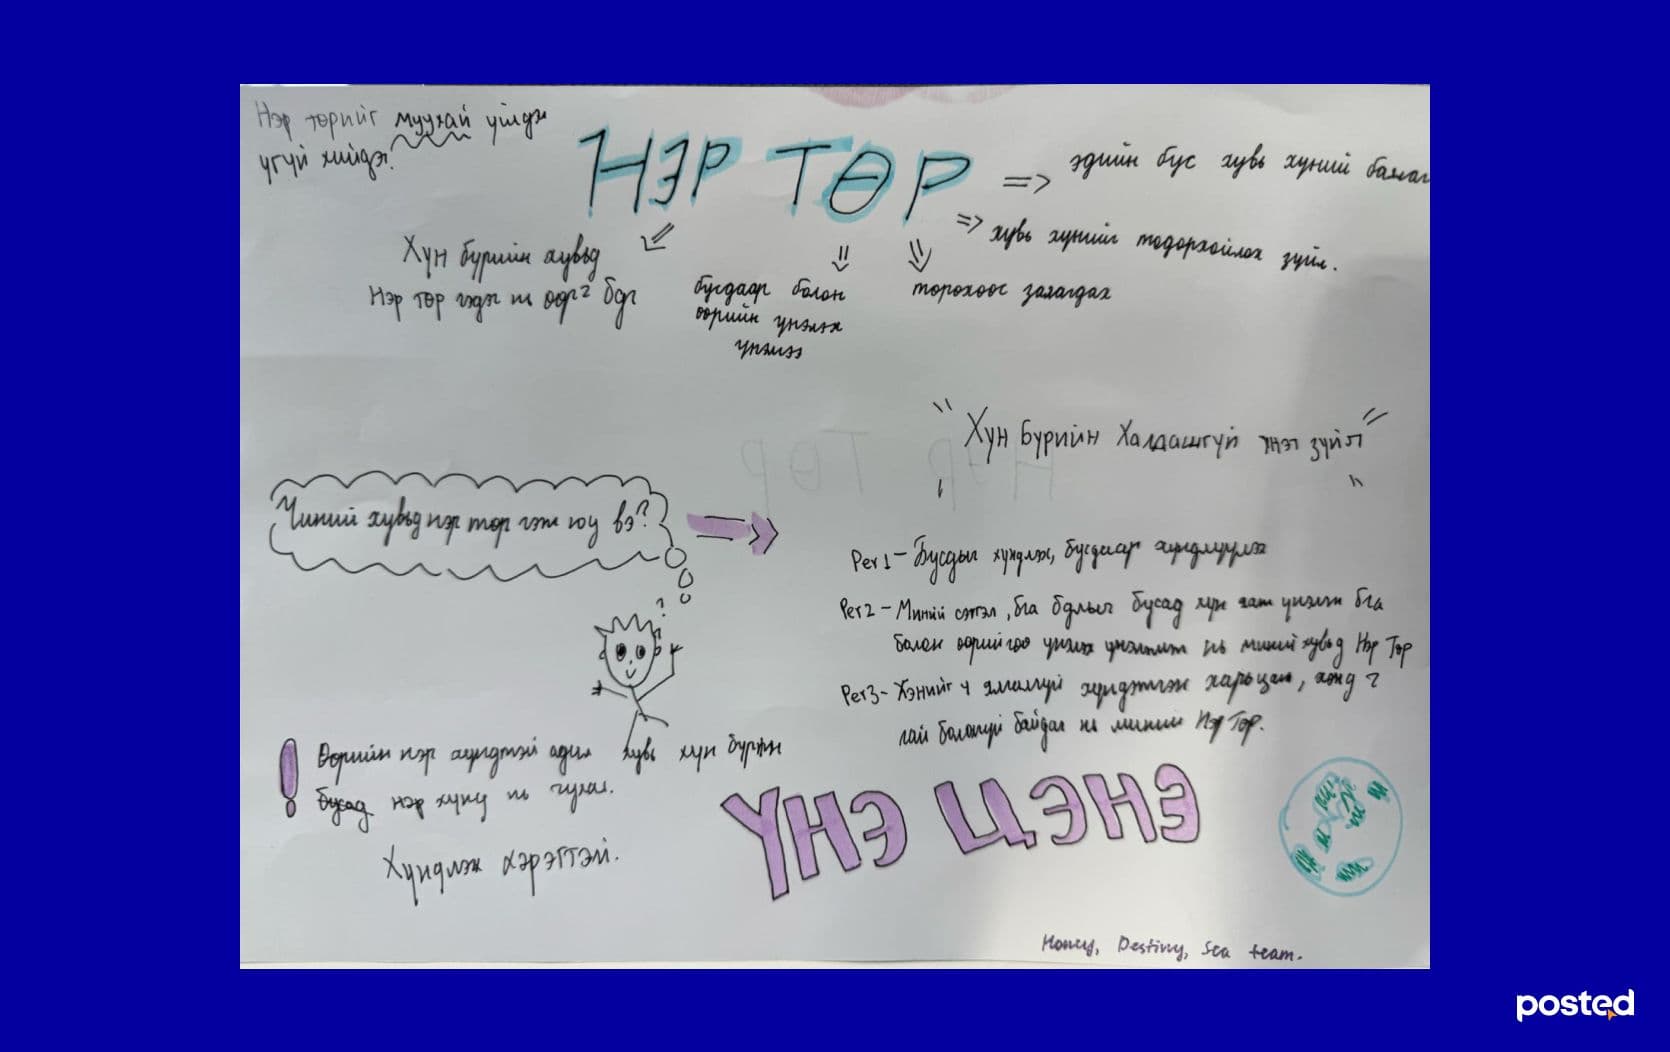 Нэр төрийг муухай үйлдэл
үгүй хийдэг!
НЭР ТӨР
=> эдийн бус хувь хүний баялаг
=> хувь хүнийг тодорхойлох зүйл.
Хүн бүрийн хувьд
Нэр төр гэдэг нь өөр² бдг
бусдаар болон
өөрийн үнэлэх
үнэлээ
төрөхөөс заяагдах
" Хүн бүрийн Халдашгүй үнэт зүйл "
Чиний хувьд нэр төр гэж юу вэ?
Per1 – Бусдыг хүндлэх, бусдаар хүндлүүлэх
Per2 – Миний сэтгэл, бга бдлыг бусад хүн яаж үнэлж бга
болон өөрийгөө үнэлэх үнэлэмж нь миний хувьд Нэр Төр
Per3 – Хэнийг ч ялгалгүй хүндэтгэж харьцан, хэнд ч
гай болохгүй байдал нь миний Нэр Төр.
! Өөрийн нэр хүндтэй адил хувь хүн бүрийн
бусад нэр хүнд нь чухал.
Хүндлэх хэрэгтэй.
ҮНЭ ЦЭНЭ
Honey, Destiny, Sea team.
posted